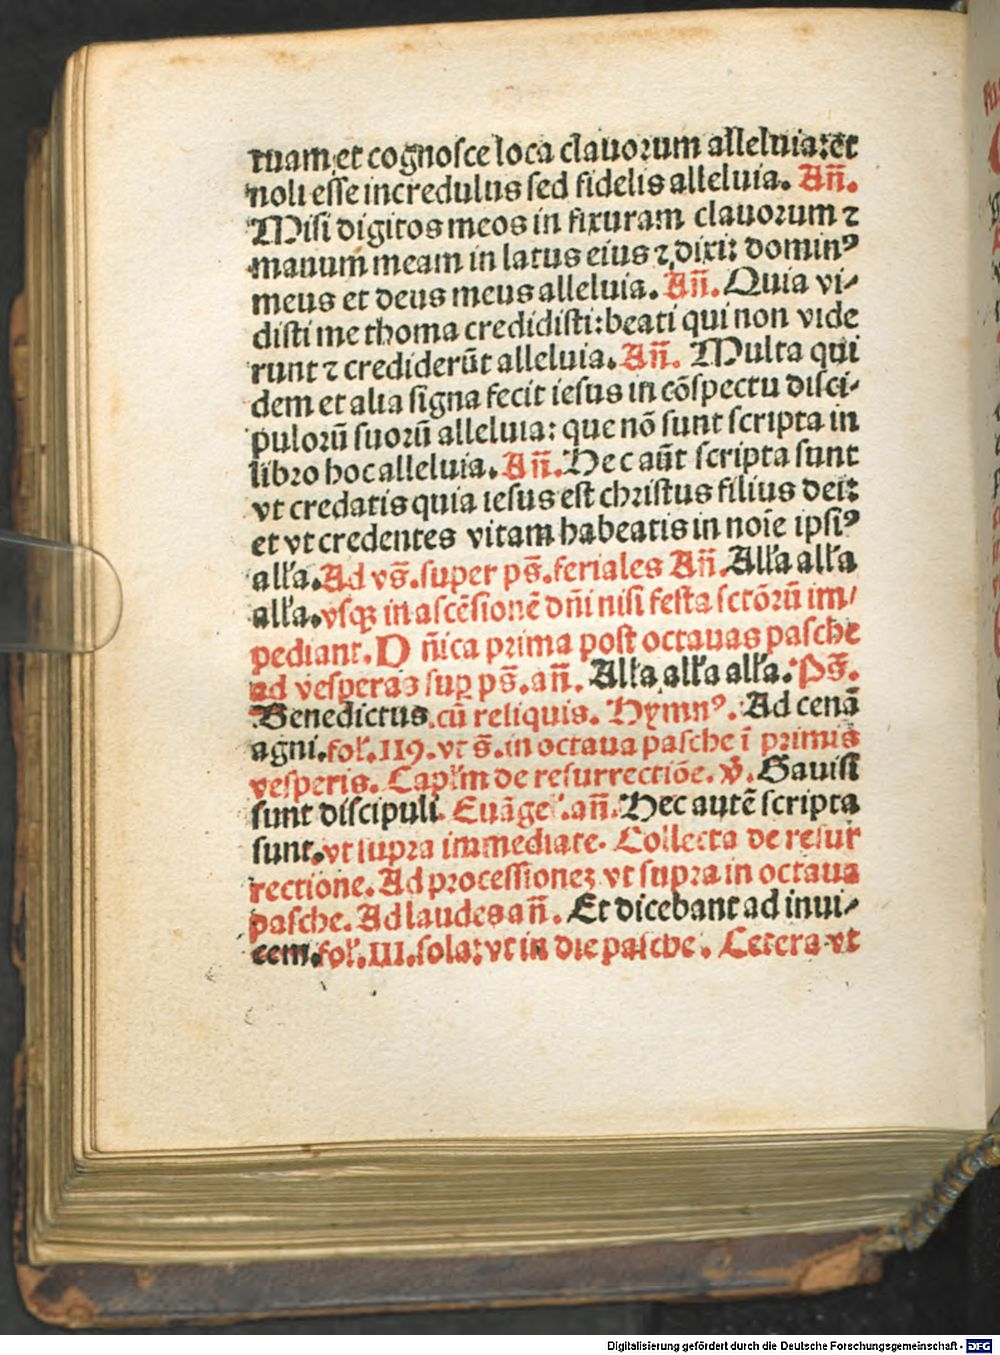 tuam et cognosce loca clauorum alleluia: et
noli esse incredulus sed fidelis alleluia. An̄.
Misi digitos meos in fixuram clauorum ⁊
manum meam in latus eius ⁊ dixi: dominꝰ
meus et deus meus alleluia. An̄. Quia vi-
disti me thoma credidisti: beati qui non vide
runt ⁊ crediderūt alleluia. An̄. Multa qui
dem et alia signa fecit iesus in cōspectu disci-
pulorū suorū alleluia: que nō sunt scripta in
libro hoc alleluia. An̄. Hec aūt scripta sunt
vt credatis quia iesus est christus filius dei:
et vt credentes vitam habeatis in noīe ipsiꝰ
all'a. Ad vs̄. super ps̄. feriales An̄. All'a all'a
all'a. vsqꝫ in ascēsionē dn̄i nisi festa sctōrū im/
pediant. D n̄ica prima post octauas pasche
ad vesperas suꝑ ps̄. an̄. All'a all'a all'a. Ps̄.
Benedictus. cū reliquis. Hymnꝰ. Ad cenā
agni. fol'. 119. vt s̄. in octaua pasche ī primis
vesperis. Capl'm de resurrectiōe. V̄. Gauisi
sunt discipuli. Euāgel'. an̄. Hec autē scripta
sunt. vt supra immediate. Collecta de resur
rectione. Ad processioneꝫ vt supra in octaua
pasche. Ad laudes an̄. Et dicebant ad inui-
cem. fol'. 111. sola: vt in die pasche. Cetera vt
Digitalisierung gefördert durch die Deutsche Forschungsgemeinschaft - DFG